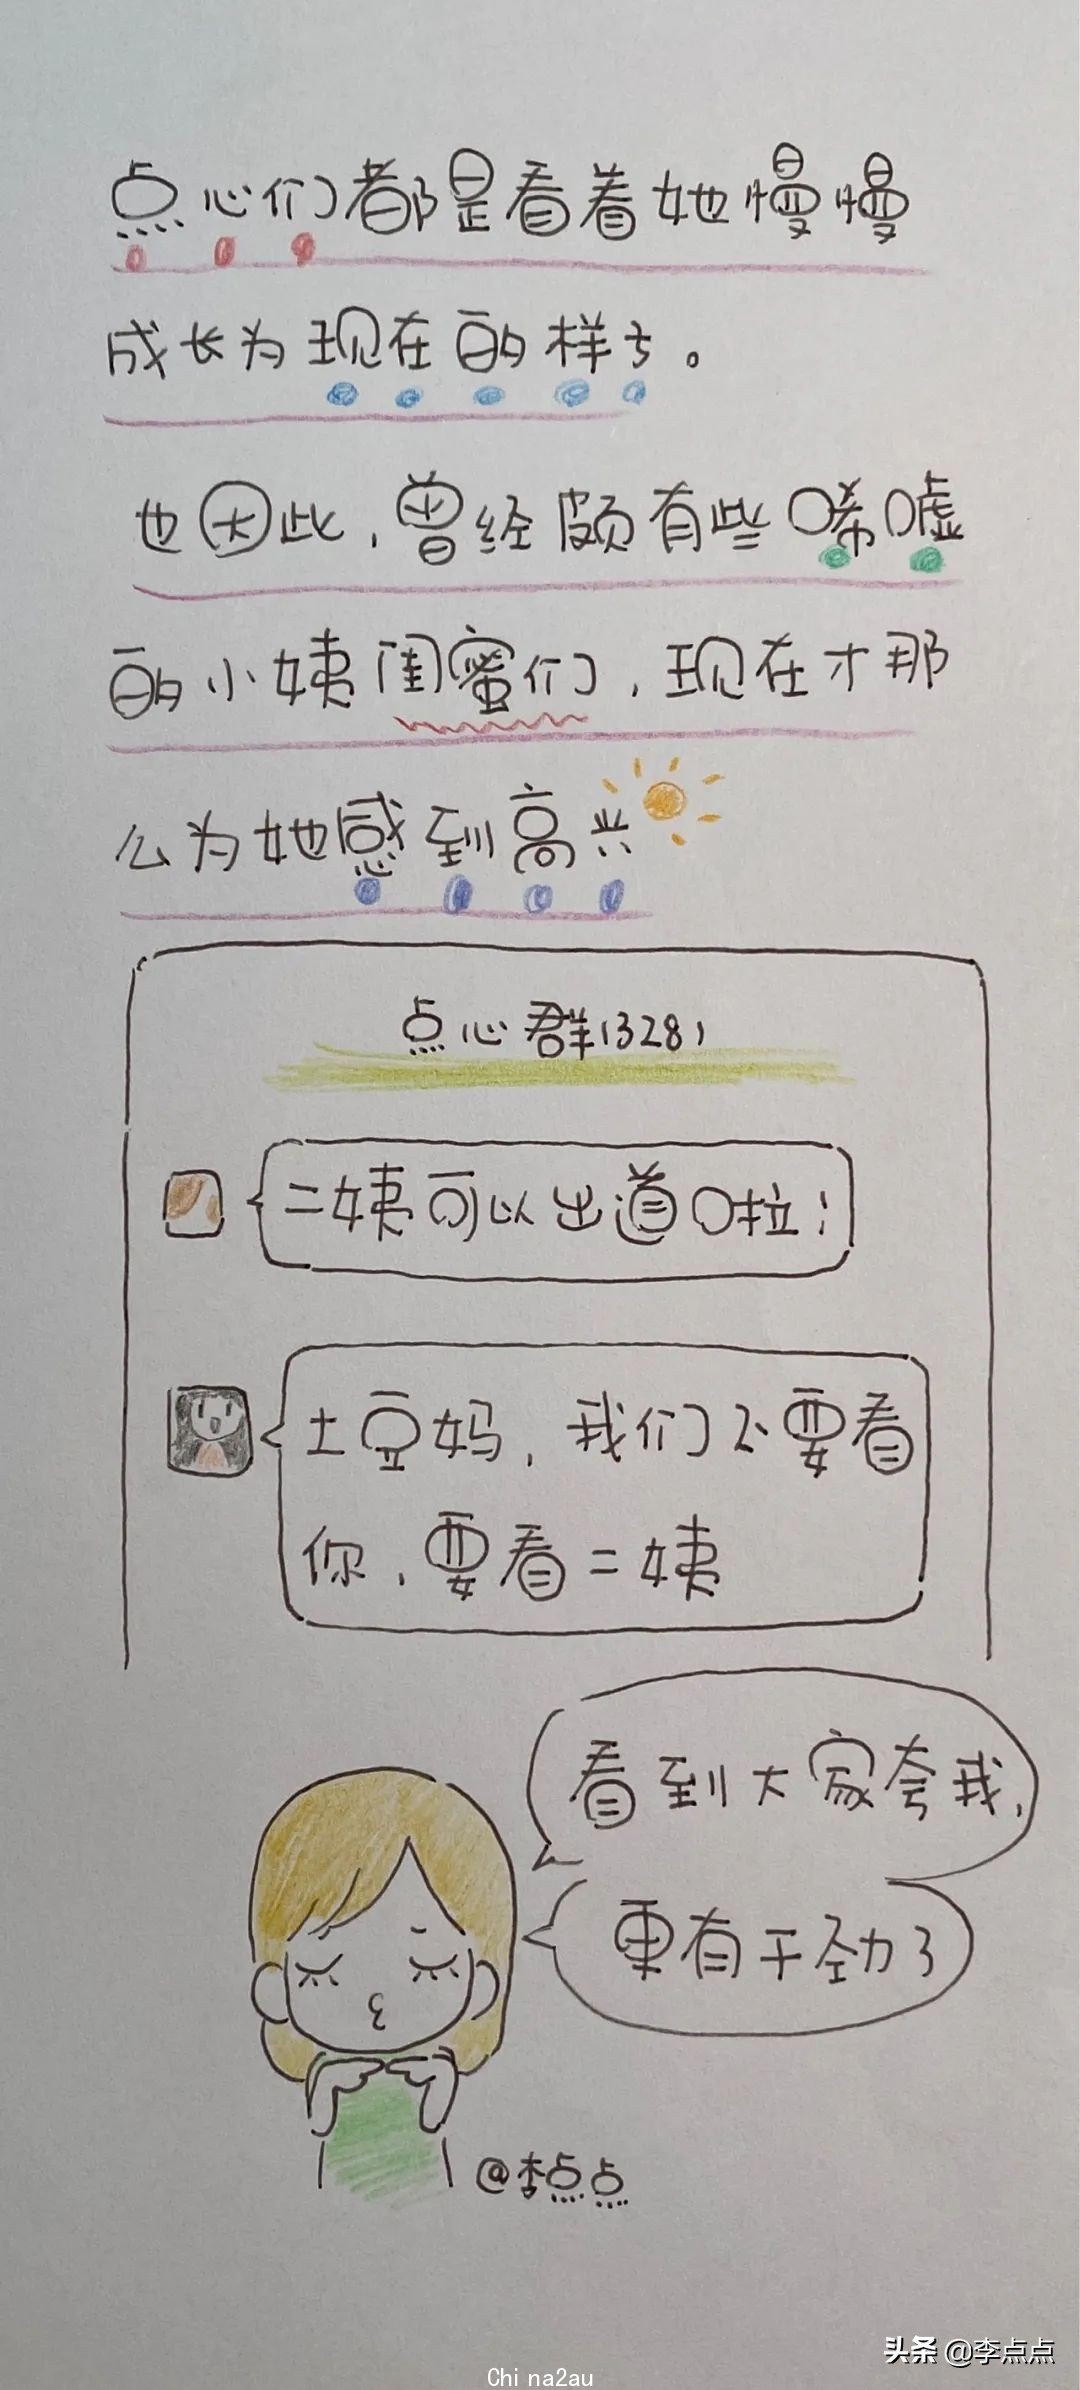 点心们都是看着她慢慢
成长为现在的样子。
也因此,曾经颇有些唏嘘
的小姨闺蜜们,现在才那
么为她感到高兴
点心群(328)
二姨可以出道啦!
土豆妈,我们不要看
你,要看二姨
看到大家夸我,
更有干劲了
@李点点
头条 @李点点
China2au